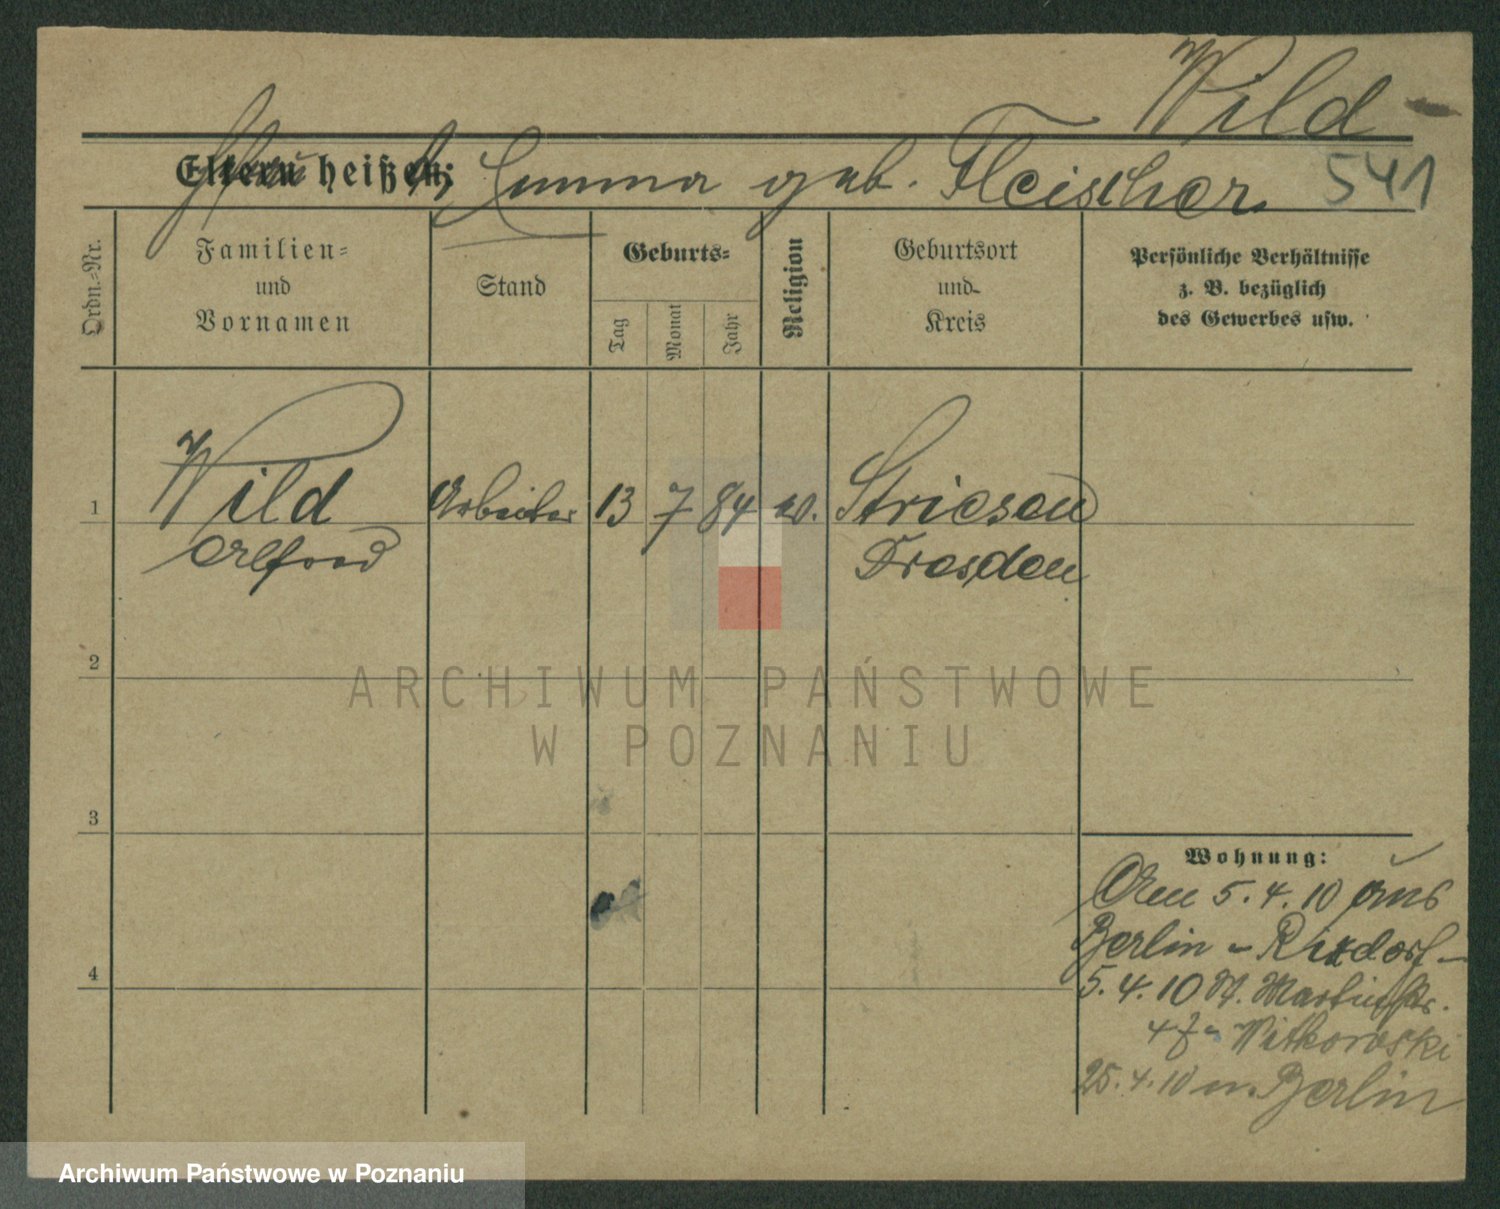 Wild
Eltern heißen: Emma geb. Fleischer.
541
Ordn.-Nr.
Familien-
und
Vornamen
Stand
Geburts-
Tag
Monat
Jahr
Religion
Geburtsort
und
Kreis
Persönliche Verhältnisse
z. B. bezüglich
des Gewerbes usw.
1
Wild
Alfred
Arbeiter
13
7
84
Striesen
Dresden
2
3
4
Wohnung:
Am 5. 4. 10 aus
Berlin - Rixdorf -
5. 4. 10 St. Martinstr.
Witkowski
25. 4. 10 n. Berlin
ARCHIWUM PAŃSTWOWE
W POZNANIU
Archiwum Państwowe w Poznaniu